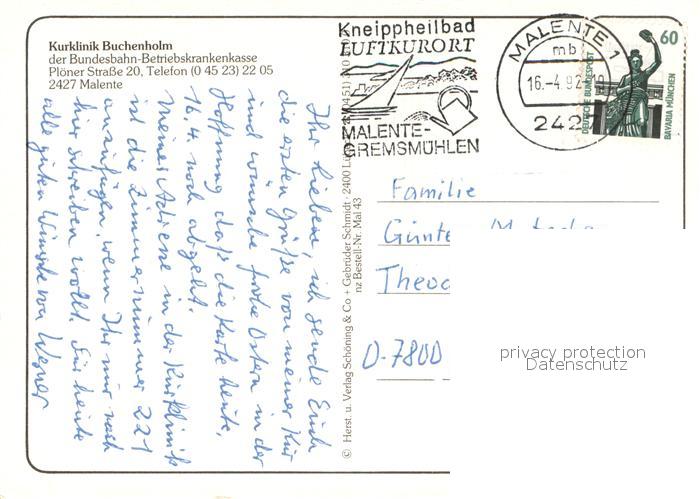 Kurklinik Buchenholm
der Bundesbahn-Betriebskrankenkasse
Plöner Straße 20, Telefon (0 45 23) 22 05
2427 Malente
Kneippheilbad
LUFTKURORT
MALENTE-
GREMSMÜHLEN
MALENTE 1
mb
16.-4.92
2427
60
DEUTSCHE BUNDESPOST
BAVARIA MÜNCHEN
Ihr Lieben, ich sende Euch
die ersten Grüße von meiner Kur
und wünsche frohe Ostern in der
Hoffnung, daß die Karte heute,
16.4. noch abgeht.
Meine Adresse in der Kurklinik
ist die Zimmernummer 221
anzufügen, wenn Ihr mir nach
hier schreiben wollt. Für heute
alle guten Wünsche von Werner
© Herst. u. Verlag Schöning & Co + Gebrüder Schmidt · 2400
nz Bestell-Nr. Mal 43
Familie
Günte
Theod
D-7800
privacy protection
Datenschutz